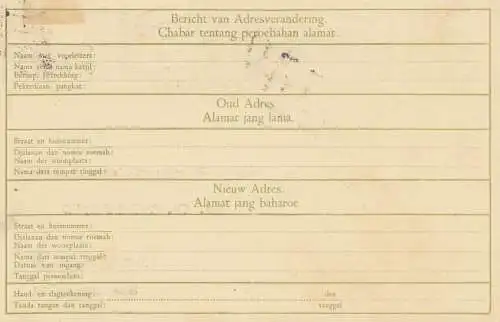 Bericht van Adresverandering.
Chabar tentang perobahan alamat.
Naam met voorletters:
Nama serta nama ketjil:
Beroep, betrekking:
Pekerdjaan, pangkat:
Oud Adres.
Alamat jang lama.
Straat en huisnummer:
Djalanan dan nomor roemah:
Naam der woonplaats:
Nama dari tempat tinggal:
Nieuw Adres.
Alamat jang baharoe
Straat en huisnummer:
Djalanan dan nomor roemah:
Naam der woonplaats:
Nama dari tempat tinggal:
Datum van ingang:
Tanggal permoelaän:
Hand- en dagteekening: den
Tanda tangan dan tanggal: tanggal